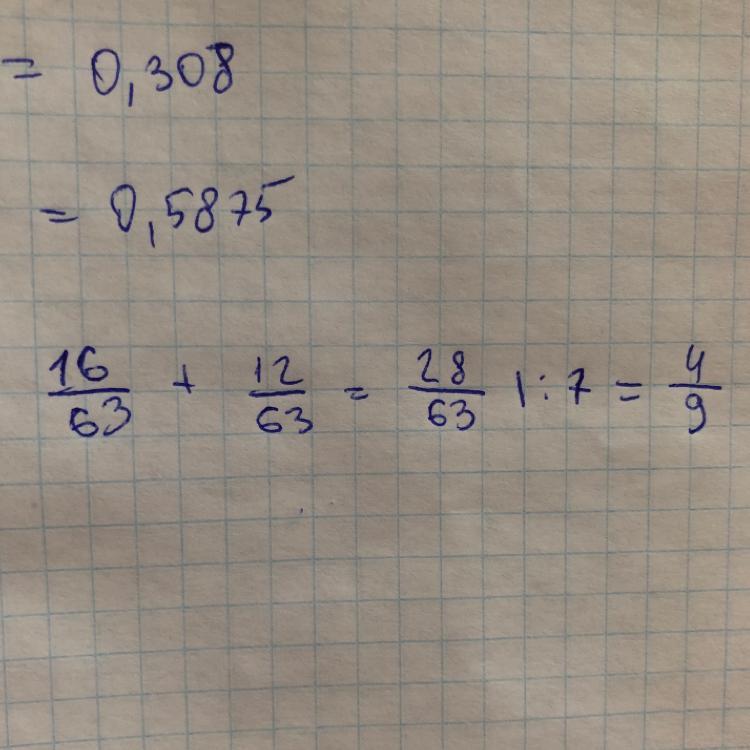 = 0,308
= 0,5875
16/63 + 12/63 = 28/63 | : 7 = 4/9